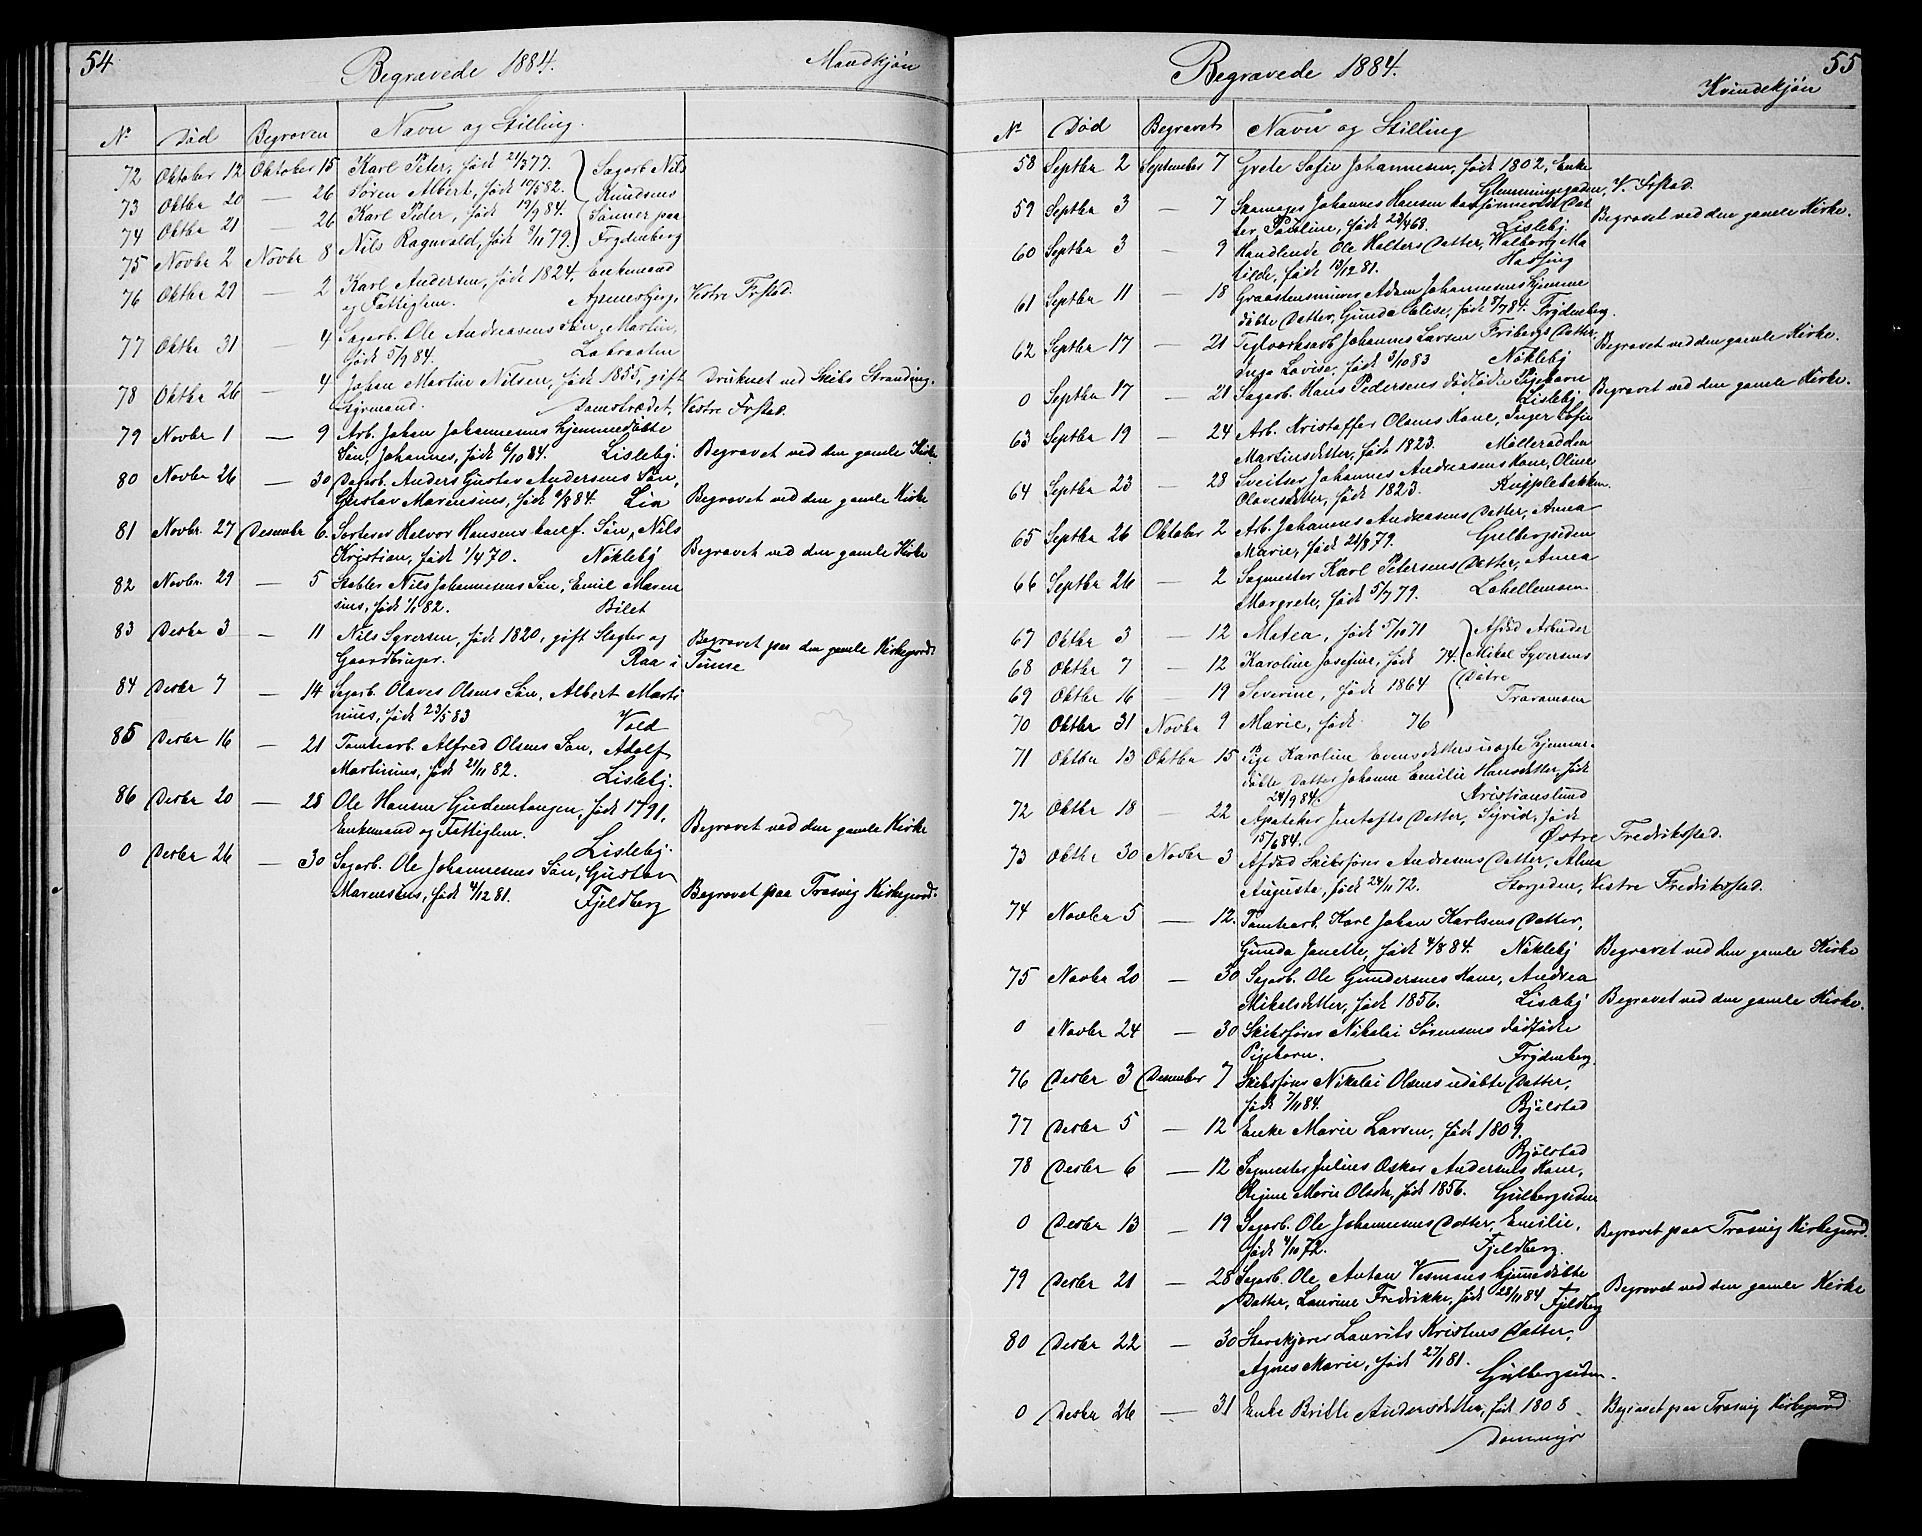 54
Begravede 1884.
Mandkjön
No Död Begraven Navn og Stilling.
72 Oktober 12 Oktober 15 Karl Peter, født 21/3 77. Sagarb. Nils
73 Oktbr 20 — 26 Søren Albert, født 10/5 82. Knudsens
74 Oktbr 21 — 26 Karl Peder, født 19/9 84. Sønner paa
75 Novbr 2 Novbr 8 Nils Ragnvald, født 8/11 79. Frydenberg
76 Oktbr 29 — 2 Karl Andersen, født 1824, Enkemand
og Fattiglem. Vestre Frstad.
77 Oktbr 31 — 4 Sagarb. Ole Andreasens Søn, Martin,
født 5/9 84. Labraaten
78 Oktbr 26 — 4 Johan Martin Nilsen, født 1855, gift Druknet ved Skibs Stranding.
Styrmand. Damstrædet, Vestre Frstad.
79 Novbr 1 — 9 Arb. Johan Johannesens hjemmedöbte
Søn, Johannes, født 6/10 84. Lisleby. Begravet ved den gamle Kirke
80 Novbr 26 — 30 Dagarb. Anders Gustav Andersens Søn,
Gustav Marensius, født 9/8 84. Lia Begravet ved den gamle Kirke
81 Novbr. 27 Desember 6. Sorterer Halvor Hansens konf. Søn, Nils
Kristian, født 1/4 70. Nökleby Begravet ved den gamle Kirke
82 Novbr. 29 — 5 Stabler Nils Johannesens Søn, Emil Maren
sius, født 1/1 82. Bilet
83 Desbr 3 — 11 Nils Syversen, født 1820, gift Slagter og
Gaardbruger. Raa i Tunse Begravet paa den gamle Kirkegaard.
84 Desbr 7 — 14 Sagarb. Olaves Olsens Søn, Albert Marti
nius, født 23/5 83 Vold
85 Desbr 16 — 21 Tomtearb. Alfred Olsens Søn, Adolf
Martinius, født 21/11 82. Lisleby.
86 Desbr 20 — 28 Ole Hansen Gudemtangen, født 1791,
Enkemand og Fattiglem. Lisleby. Begravet ved den gamle Kirke
0 Desbr 26 — 30 Sagarb. Ole Johannesens Søn, Gustav
Marensius, født 4/12 81. Fjeldberg Begravet paa Trosvig Kirkegaard.
55
Begravede 1884.
Kvindekjön
No Död Begravet Navn og Stilling
58 Septbr 2 September 7 Grete Sofie Johannesen, født 1802, Enke
Glemmingegaden, V. Frstad.
59 Septbr 3 — 7 Skomager Johannes Hansen Dat
ter, Pauline, født 23/4 68. Lisleby Begravet ved den gamle Kirke.
60 Septbr 3 — 9 Handlende Ole Holters Datter, Valborg Ma
tilde, født 13/12 81. Hassing
61 Septbr 11 — 18 Graastensminer Adam Johannesens hjemme
döbte Datter, Gunda Elise, født 8/7 84. Frydenberg.
62 Septbr 17 — 21 Teglværksarb. Johannes Larsen Fribergs Datter,
Inga Lovise, født 3/10 83 Nökleby Begravet ved den gamle Kirke.
0 Septbr 17 — 21 Sagarb. Hans Pedersens dödfödte Pigebarn
Lisleby Begravet ved den gamle Kirke.
63 Septbr 19 — 24 Arb. Kristoffer Olsens Kone, Inger Sofie
Martinsdatter, født 1823. Mölleradden
64 Septbr 23 — 28 Sveitser Johannes Andreasens Kone, Oline
Olavesdatter, født 1823. Kniplebakken.
65 Septbr 26 Oktober 2 Arb. Johannes Andreasens Datter, Anna
Marie, født 21/8 79. Gulbergsiden
66 Septbr 26 — 2 Sagmester Karl Petersens Datter, Anna
Margrete, født 5/7 79. Labellemoen
67 Oktbr 3 — 12 Matea, født 5/10 71 Afdöd Arbeider
68 Oktbr 7 — 12 Karoline Josefine, født 74. Mikal Syversens
69 Oktbr 16 — 19 Severine, født 1864 Døtre
70 Oktbr 31 Novbr 9 Marie, født 76 Traramoen
71 Oktbr 13 Oktbr 15 Pige Karoline Evensdatters uægte hjemme-
döbte Datter Johanne Emilie Hansdatter, født
24/9 84. Kristianslund
72 Oktbr 18 — 22 Apoteker Jentofts Datter, Sigrid, født
15/6 84. Østre Fredrikstad.
73 Oktbr 30 Novbr 3 Afdöd Skibsfører Andersens Datter, Alma
Augusta, født 24/11 72. Storgaden, Vestre Fredrikstad.
74 Novbr 5 — 12. Tomtearb. Karl Johan Karlsens Datter,
Gunda Janette, født 4/8 84. Nökleby Begravet ved den gamle Kirke
75 Novbr 20 — 30 Sagarb. Ole Gundersens Kone, Andrea
Mikalsdatter, født 1856. Lisleby Begravet ved den gamle Kirke.
0 Novbr 24 — 30 Skibsfører Nikolai Sörensens dödfödte
Pigebarn. Frydenberg.
76 Desbr 3 Desember 7 Skibsförer Nikolai Olsens udöbte Datter,
født 7/11 84. Bjölstad
77 Desbr 5 — 12 Enke Marie Larsen, født 1809.
Bjölstad
78 Desbr 6 — 12 Sagmester Julius Oskar Andersens Kone,
Regine Marie Olsdtr, født 1856. Gulbergsiden
0 Desbr 13 — 19 Sagarb. Ole Johannesens Datter, Emilie,
født 4/10 72. Fjeldberg. Begravet paa Trosvig Kirkegaard.
79 Desbr 21 — 28 Sagarb. Ole Anton Vesmans hjemmedöbte
Datter, Laurine Fredrikke, født 28/11 84 Fjeldberg Begravet ved den gamle Kirke
80 Desbr 22 — 30 Stenskjærer Laurits Kristens Datter,
Agnes Marie, født 27/1 81. Gulbergsiden.
0 Desbr 26 — 31 Enke Britte Andersdatter, født 1808 Begravet paa Trosvig Kirkegaard
Dammyr